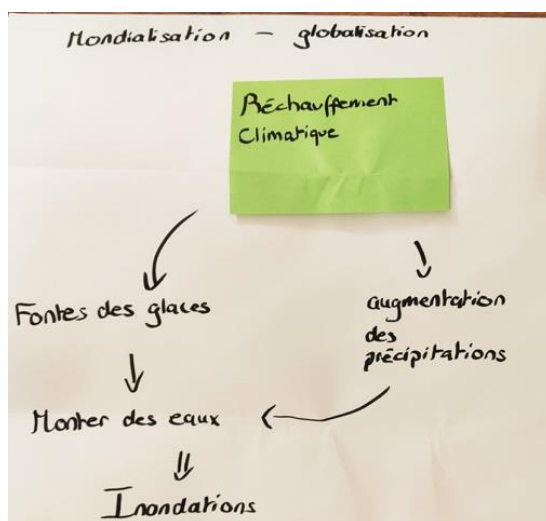 Mondialisation - globalisation
Réchauffement
Climatique
Fontes des glaces
augmentation
des
précipitations
Monter des eaux
Inondations